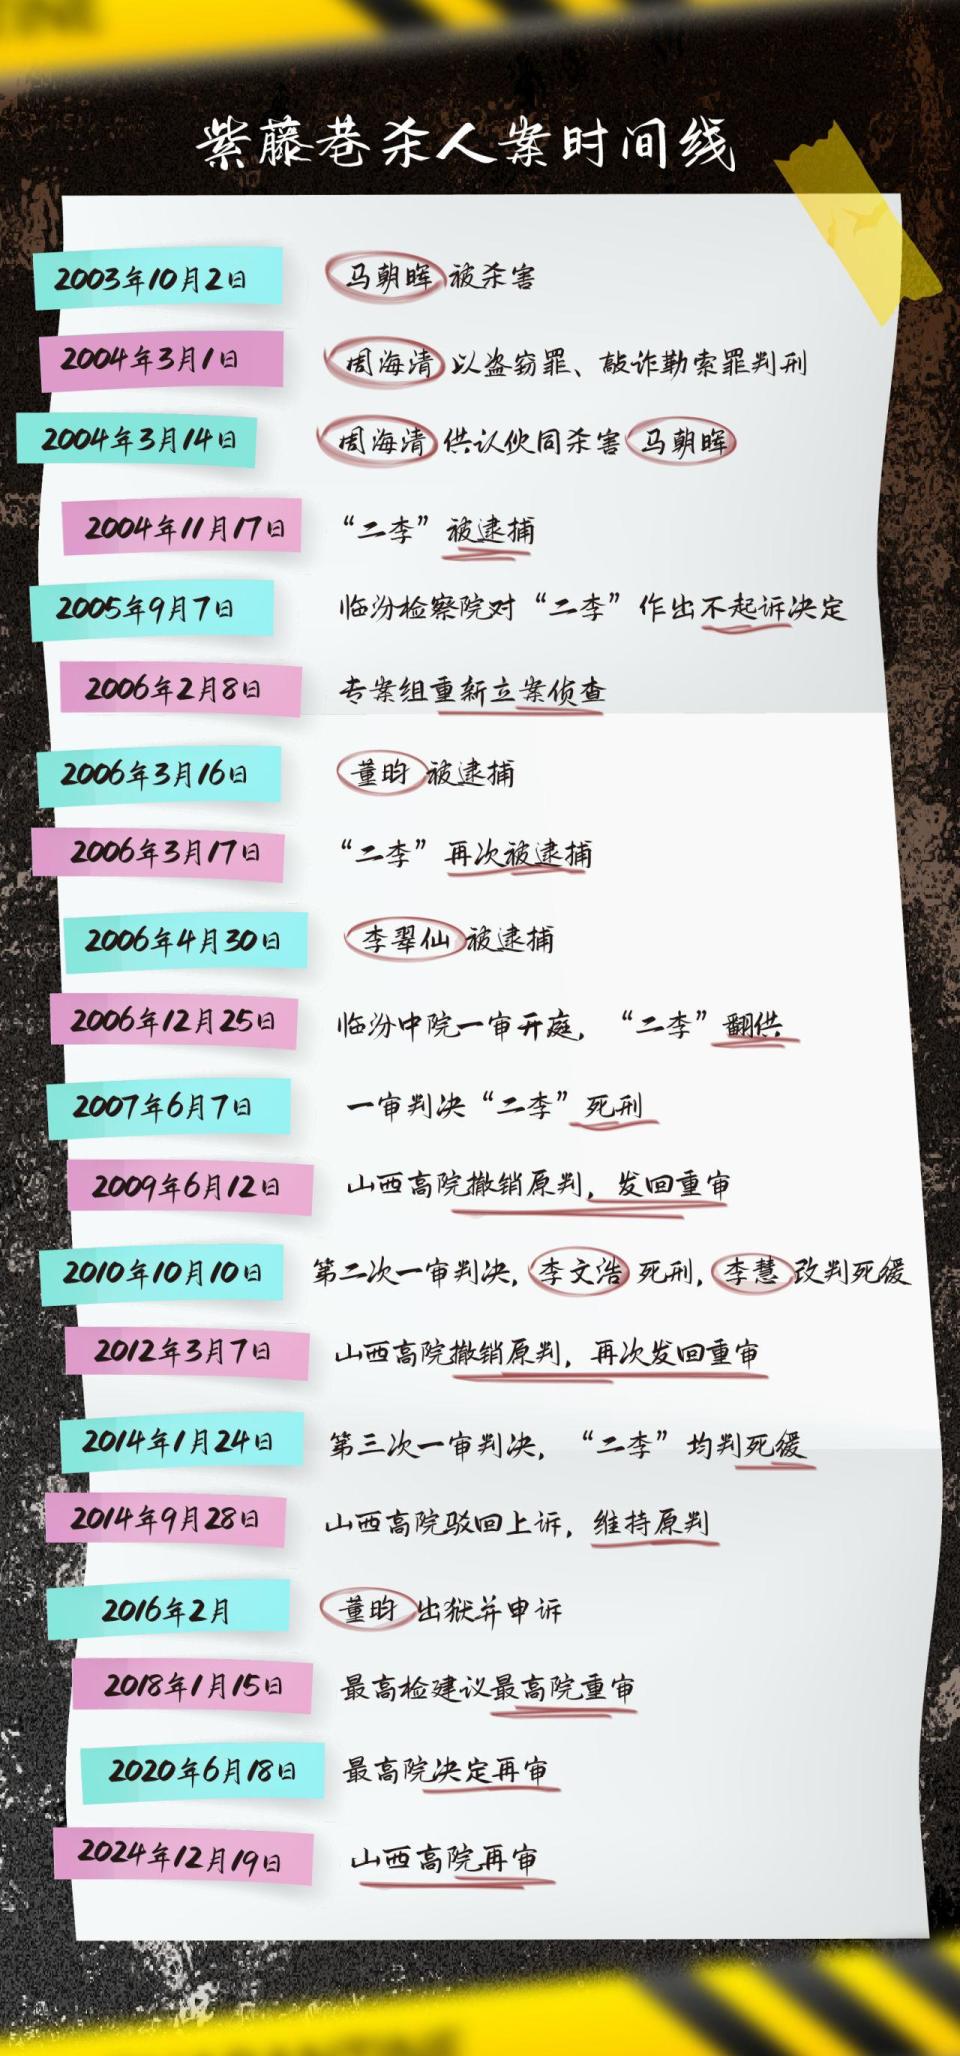 紫藤巷杀人案时间线
2003年10月2日 马朝晖被杀害
2004年3月1日 周海清以盗窃罪、敲诈勒索罪判刑
2004年3月14日 周海清供认伙同杀害马朝晖
2004年11月17日 “二李”被逮捕
2005年9月7日 临汾检察院对“二李”作出不起诉决定
2006年2月8日 专案组重新立案侦查
2006年3月16日 董昀被逮捕
2006年3月17日 “二李”再次被逮捕
2006年4月30日 李翠仙被逮捕
2006年12月25日 临汾中院一审开庭，“二李”翻供
2007年6月7日 一审判决“二李”死刑
2009年6月12日 山西高院撤销原判，发回重审
2010年10月10日 第二次一审判决，李文浩死刑，李慧改判死缓
2012年3月7日 山西高院撤销原判，再次发回重审
2014年1月24日 第三次一审判决，“二李”均判死缓
2014年9月28日 山西高院驳回上诉，维持原判
2016年2月 董昀出狱并申诉
2018年1月15日 最高检建议最高院重审
2020年6月18日 最高院决定再审
2024年12月19日 山西高院再审